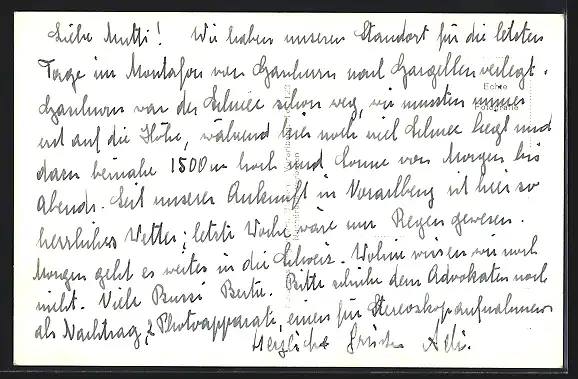 Liebe Mutti! Wir haben unseren Standort für die letzten
Tage im Montafon von Gaschurn nach Gargellen verlegt.
Gaschurn war der Schnee schon weg, wir mussten immer
erst auf die Höhe, während hier noch viel Schnee liegt und
dazu beinahe 1500 m hoch und Sonne von Morgen bis
Abends. Seit unserer Ankunft in Vorarlberg ist hier so
herrliches Wetter; letzte Woche wäre nur Regen gewesen.
Morgen geht es weiter in die Schweiz. Wohin wissen wir noch
nicht. Viele Bussi Berta. Bitte schicke dem Advokaten noch
als Nachtrag, 2 Photoapparate, einen für Stereoskopaufnahmen
Herzliche Grüsse
Echte
Fotografie